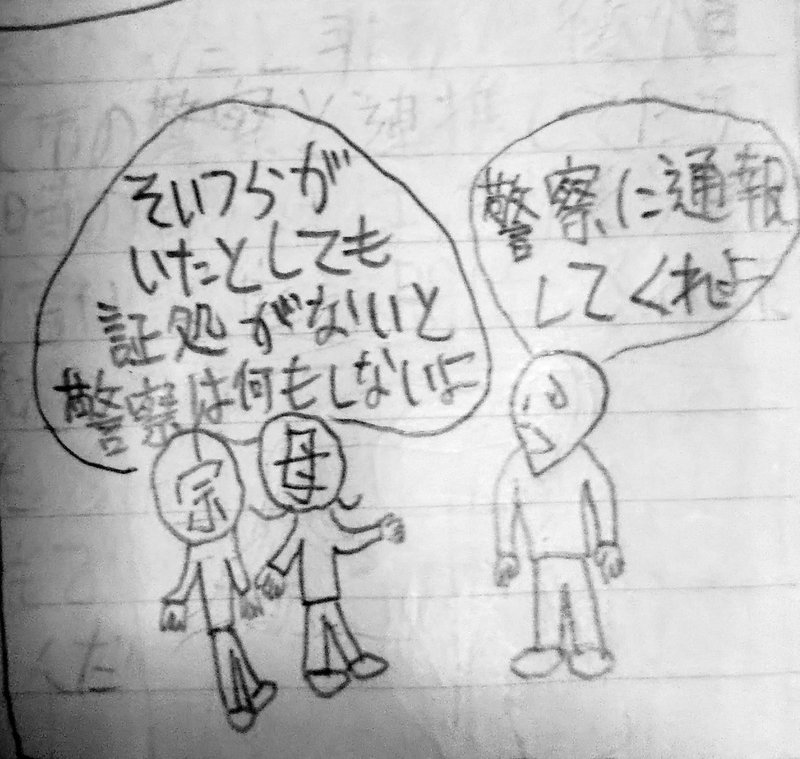 警察に通報
してくれよ
そいつらが
いたとしても
証処がないと
警察は何もしないよ
宗
母